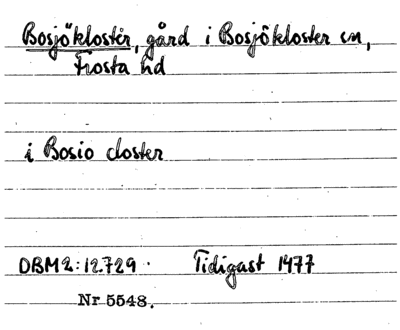 Bosjökloster, gård i Bosjökloster sn,
Frosta hd
i Bosio closter
DBM2:12.729. Tidigast 1477
Nr 5548.